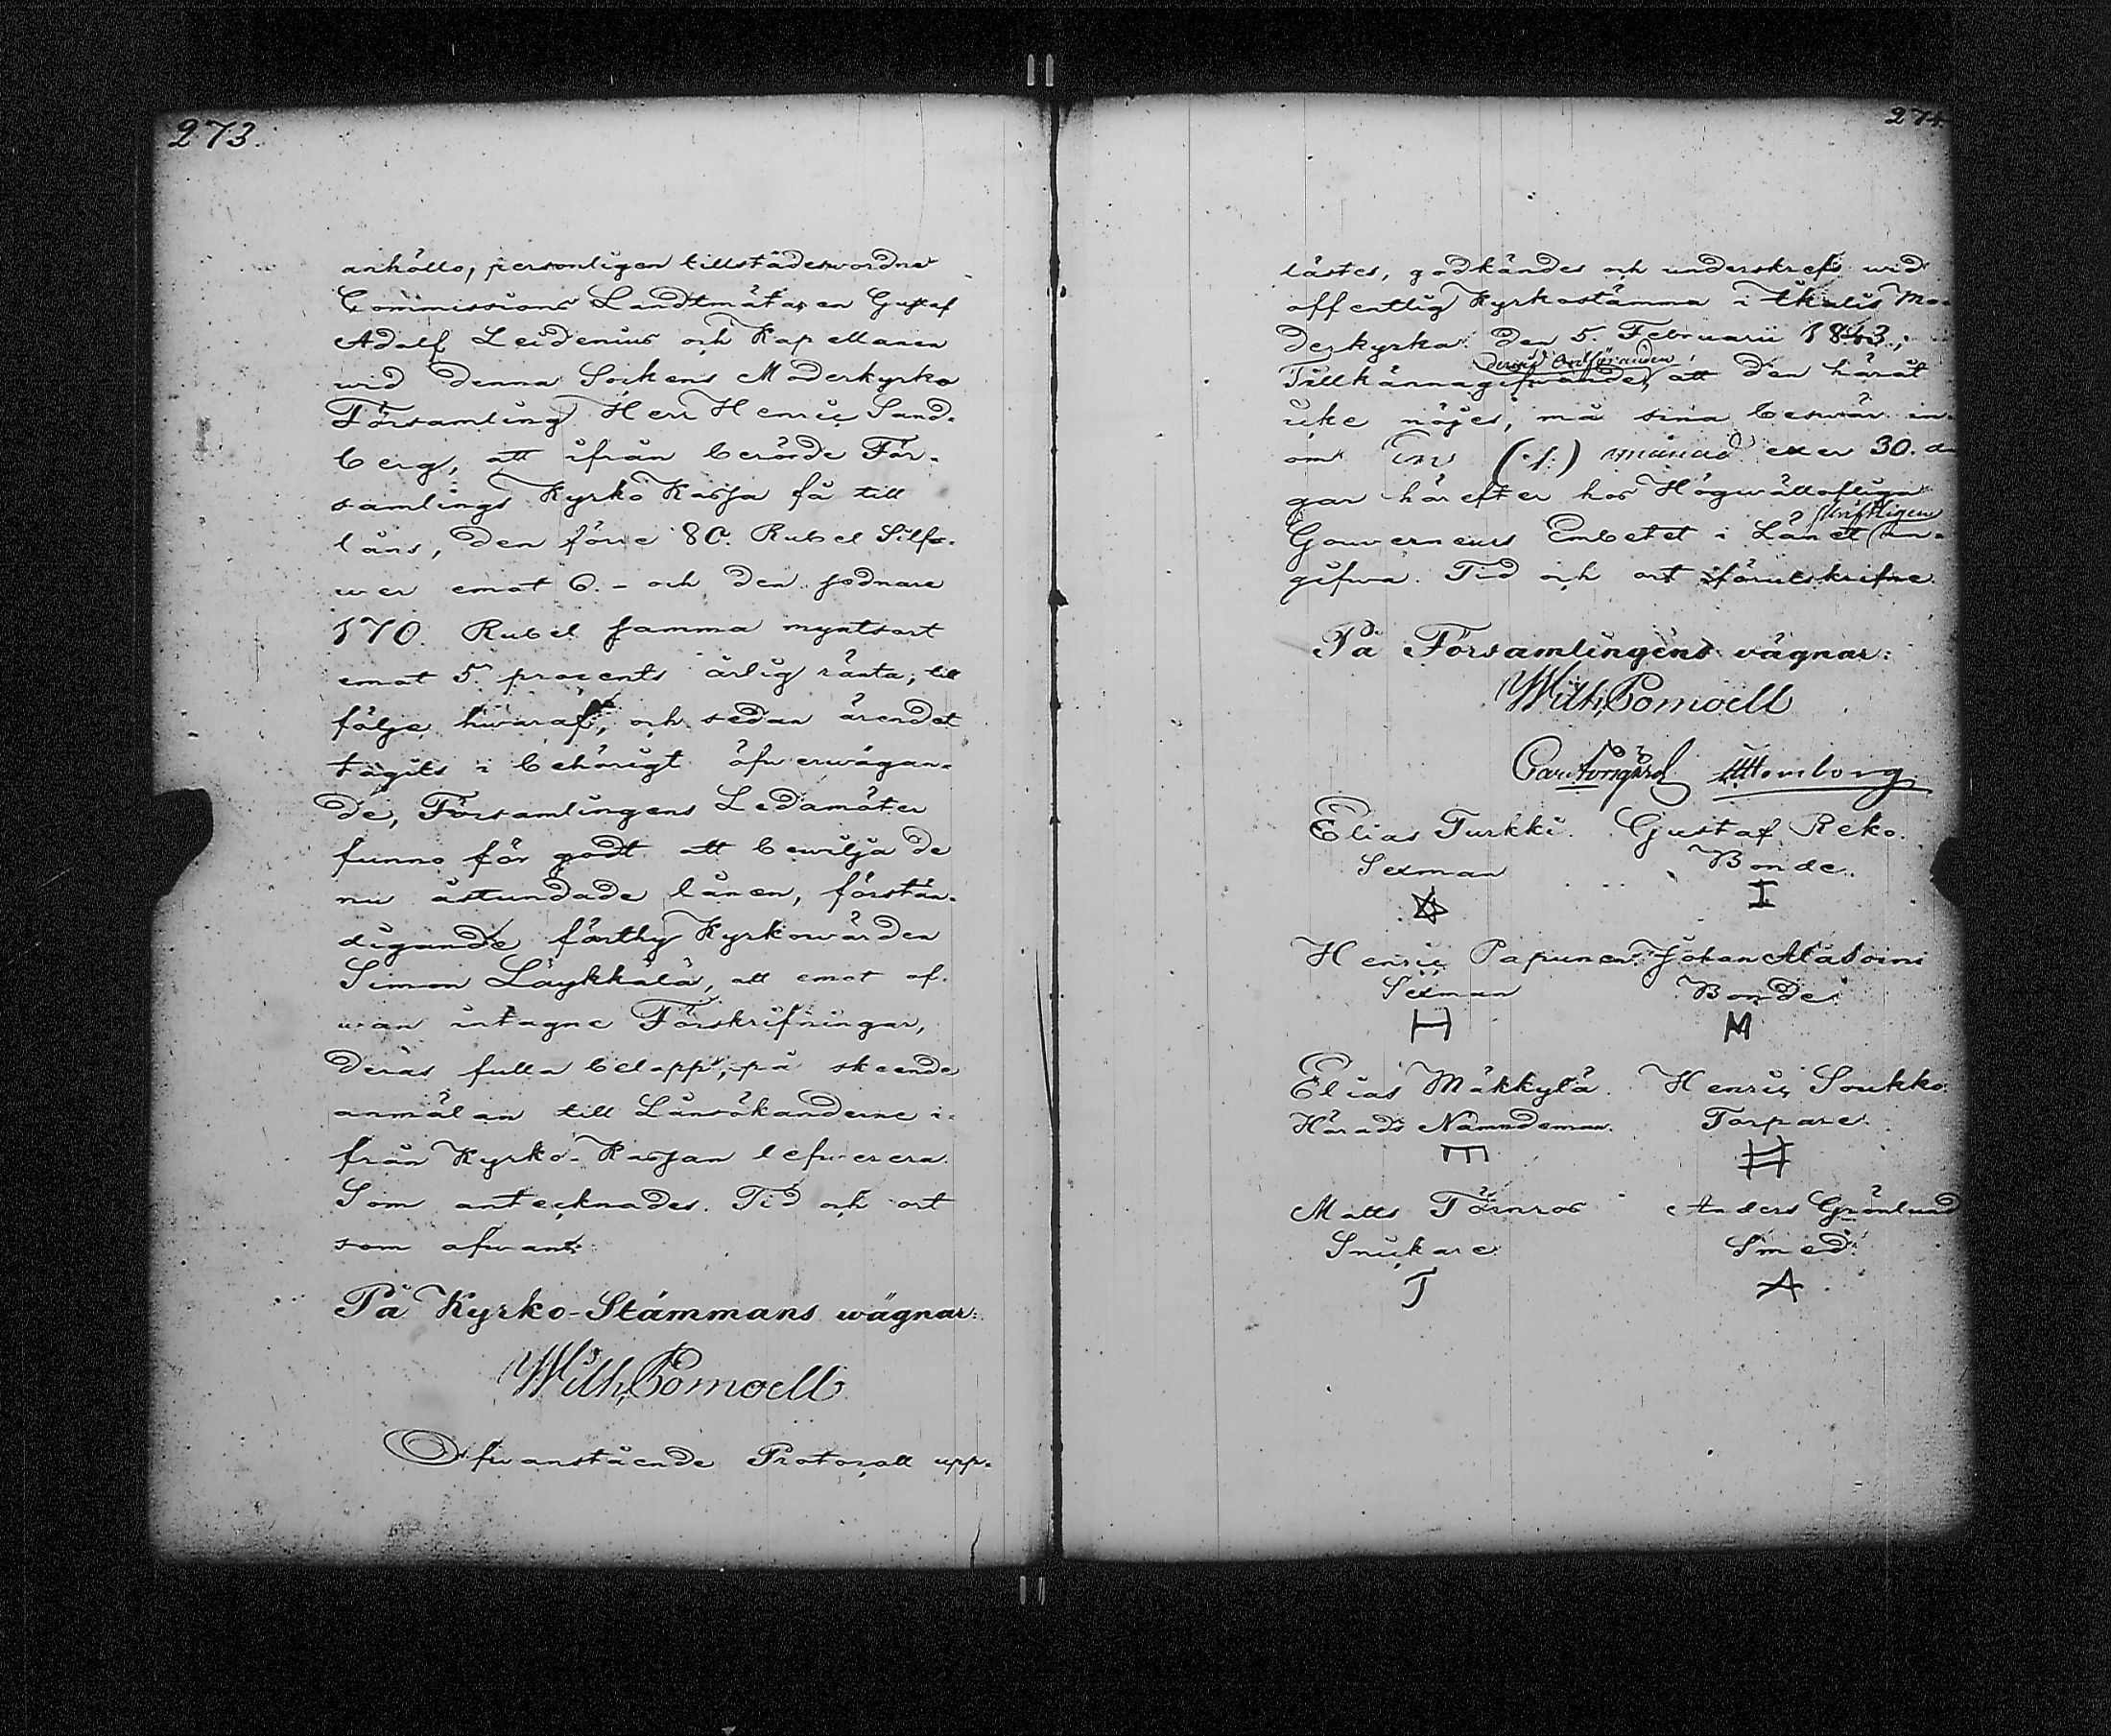 273.
anhöllo, personligen tillstädeswordne
Commissions Landtmätaren Gustaf
Adolf Leidenius och Kapellanen
wid denna Sockens Moderkyrko
Församling Herr Henric Sand-
berg, att ifrån berörde För-
samlings Kyrko Kassa få till
låns, den förre 80. Rubel Silf-
wer emot 6.- och den sednare
170. Rubel samma myntsort
emot 5. procents årlig ränta; till
följe hwaraf, och sedan ärendet
tagits i behörigt öfwerwägan-
de, Församlingens Ledamöter
funno för godt att bewilja de
nu åstundade lånen, förstän-
digande förthy Kyrkowärden
Simon Läykkälä, att emot of-
wan intagne Förskrifningar,
deras fulla belopp, på skeende
anmälan till Lånsökanderne i-
från Kyrko-Kassan lefwerera.
Som antecknades. Tid och ort
som ofwan.
På Kyrko-Stämmans wägnar:
Wilh. Pomoell
Ofwanstående Protocoll upp-
274.
lästes, godkändes och underskrefs wid
offentlig Kyrkostämma i Ikalis Mo-
derkyrka den 5. Februarii 1843.;
derwid Ordföranden
Tillkännagifwande, att den häråt
icke nöjes, må sina beswär in-
om En (1.) månad eller 30. da-
gar härefter hos Högwällofliga
skriftligen
Gouverneurs Embetet i Länet an-
gifwa. Tid och ort förutskrifne
På Församlingens vägnar:
Wilh. Pomoell
Elias Turkki. Gustaf Reko.
Sexman Bonde.
I
Henric Papunen. Johan Alasoini
Sexman Bonde
H M
Elias Mäkkylä. Henric Soukko.
Härads Nämndeman. Torpare.
E H
Matts Törnros Anders Grönlund
Snickare Smed.
T A